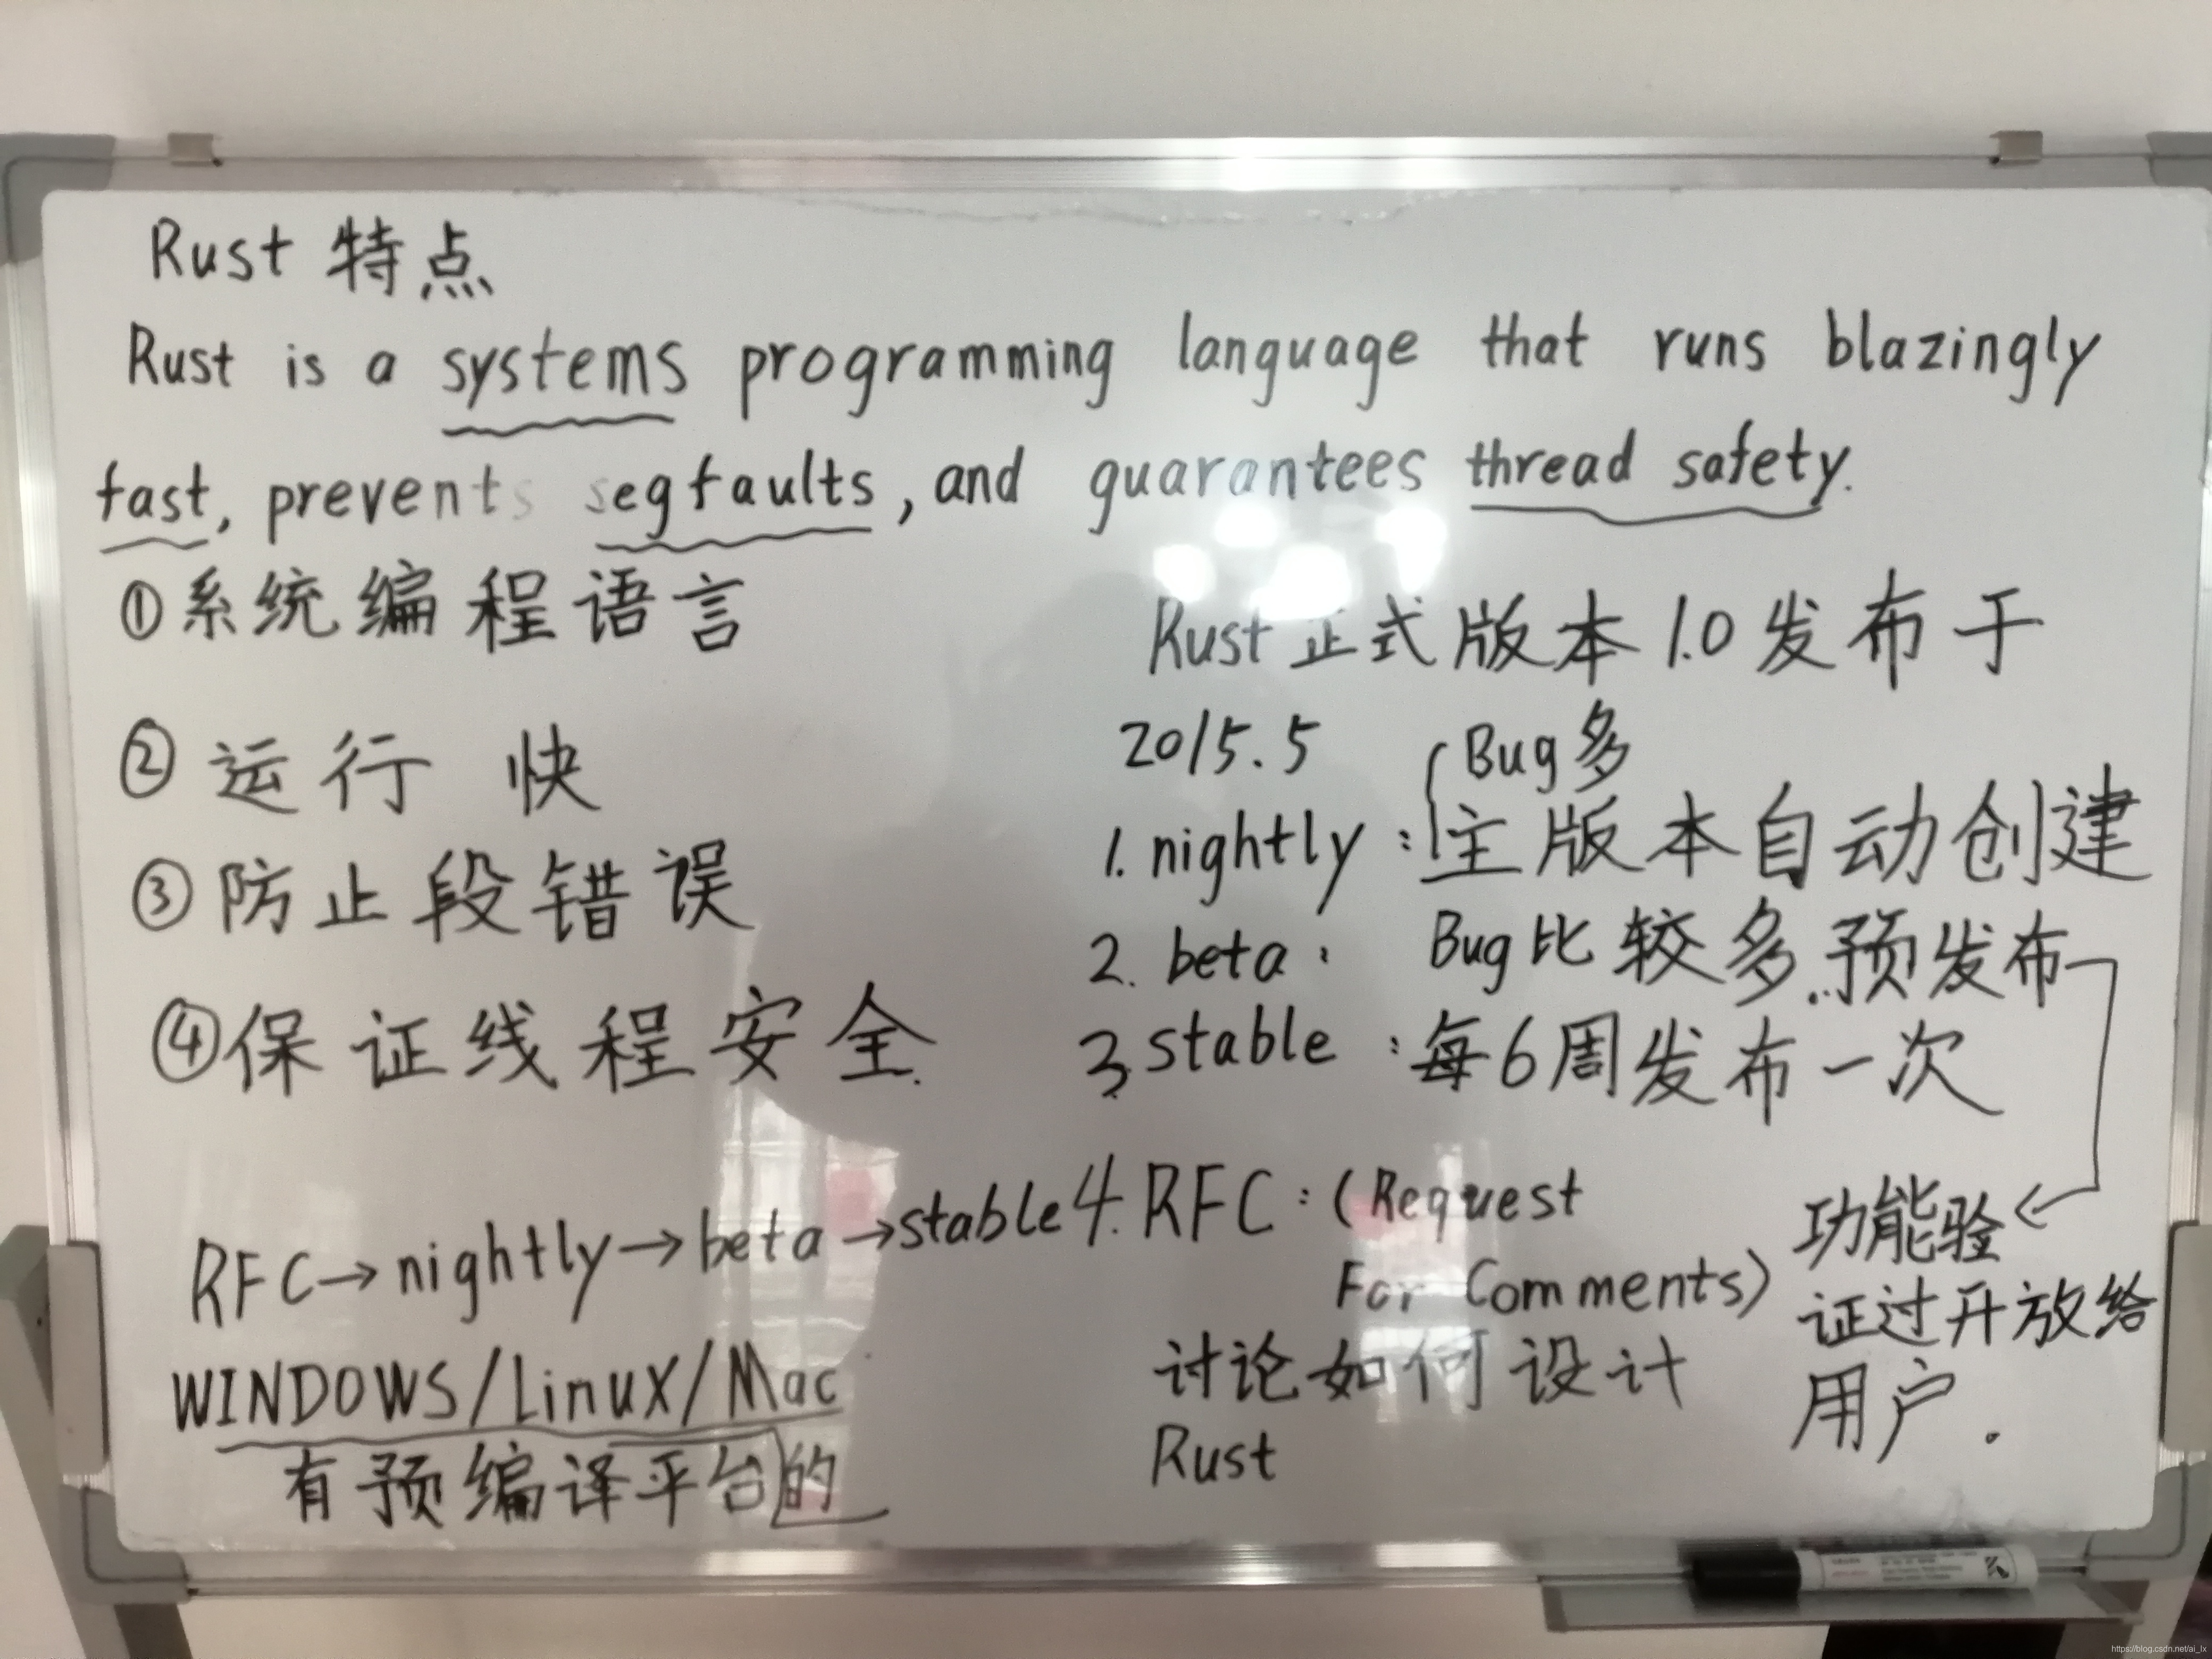 Rust 特点
Rust is a systems programming language that runs blazingly
fast, prevents segfaults, and guarantees thread safety.
①系统编程语言
②运行 快
③防止段错误
④保证线程安全.
RFC→nightly→beta→stable
WINDOWS/Linux/Mac
有预编译平台的
Rust正式版本1.0发布于
2015.5
Bug多
1. nightly:主版本自动创建
2. beta: Bug比较多.预发布
3. stable:每6周发布一次
4. RFC:(Request
For Comments)
讨论如何设计
Rust
功能验
证过开放给
用户.
https://blog.csdn.net/ai_lx